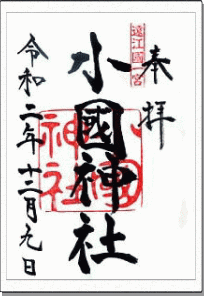 奉拝
遠江國一宮
小國神社
小國神社
令和二年十二月九日